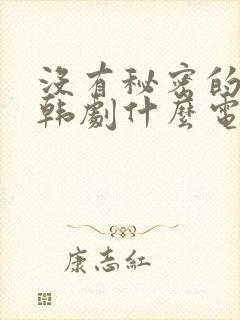 沒有秘密的
韩劇什麼電
康志紅